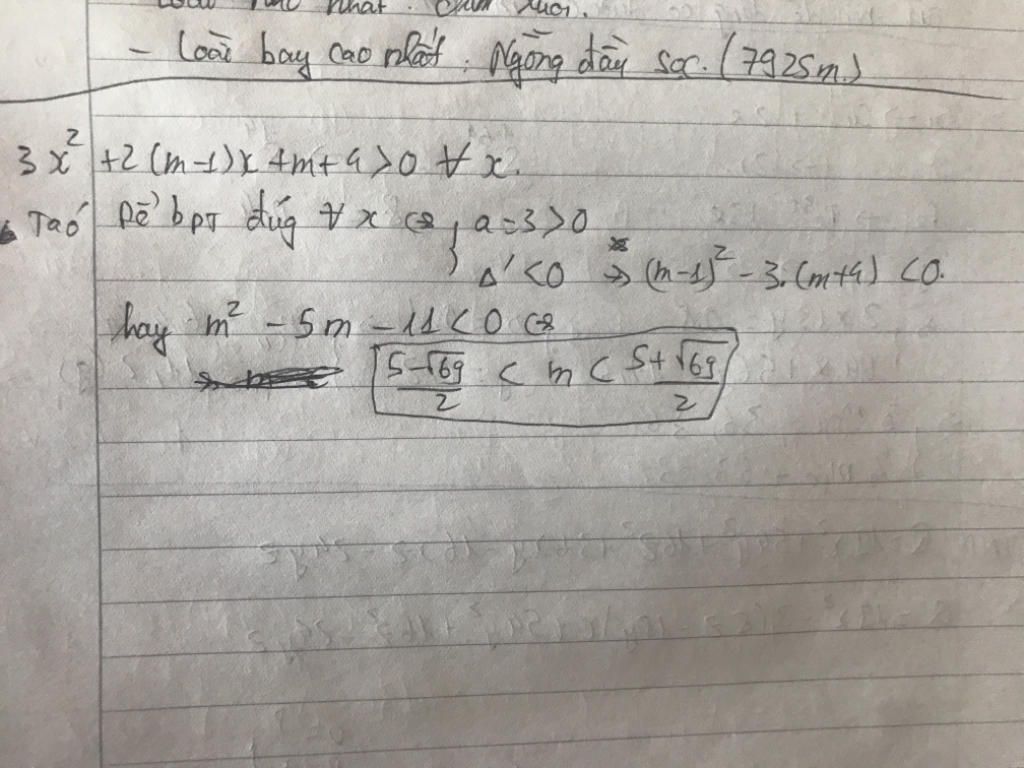 nhất. Chim ruồi.
- Loài bay cao nhất. Ngỗng đầu sọc. (7925m.)
3x² + 2(m-1)x + m+4 > 0 ∀ x.
Ta có Để bpt đúg ∀ x ⇔ { a = 3 > 0
Δ' < 0 ⇒ (m-1)² - 3.(m+4) < 0.
hay m² - 5m - 11 < 0 ⇔
(5-√69)/2 < m < (5+√69)/2